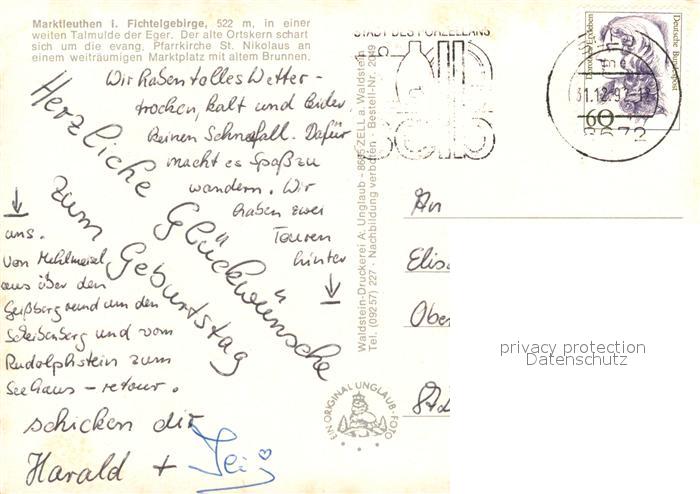 Marktleuthen i. Fichtelgebirge, 522 m, in einer
weiten Talmulde der Eger. Der alte Ortskern schart
sich um die evang. Pfarrkirche St. Nikolaus an
einem weiträumigen Marktplatz mit altem Brunnen.
Wir haben tolles Wetter -
trocken, kalt und leider
keinen Schneefall. Dafür
macht es Spaß zu
wandern. Wir
haben zwei
Touren
hinter
uns.
Von Mehlmeisel
aus über den
Geißberg rund um den
Scheibenberg und vom
Rudolphstein zum
Seehaus – retour.
Herzliche Glückwünsche
zum Geburtstag
schicken dir
Harald +
Waldstein-Druckerei A. Unglaub - 8665 ZELL a. Waldstein
Tel. (09257) 227 - Nachbildung verboten - Bestell-Nr. 2049
EIN ORIGINAL UNGLAUB-FOTO
STADT DES PORZELLANS
31.12.92
8672
Deutsche Bundespost
60
An
Elis
Ober
privacy protection
Datenschutz